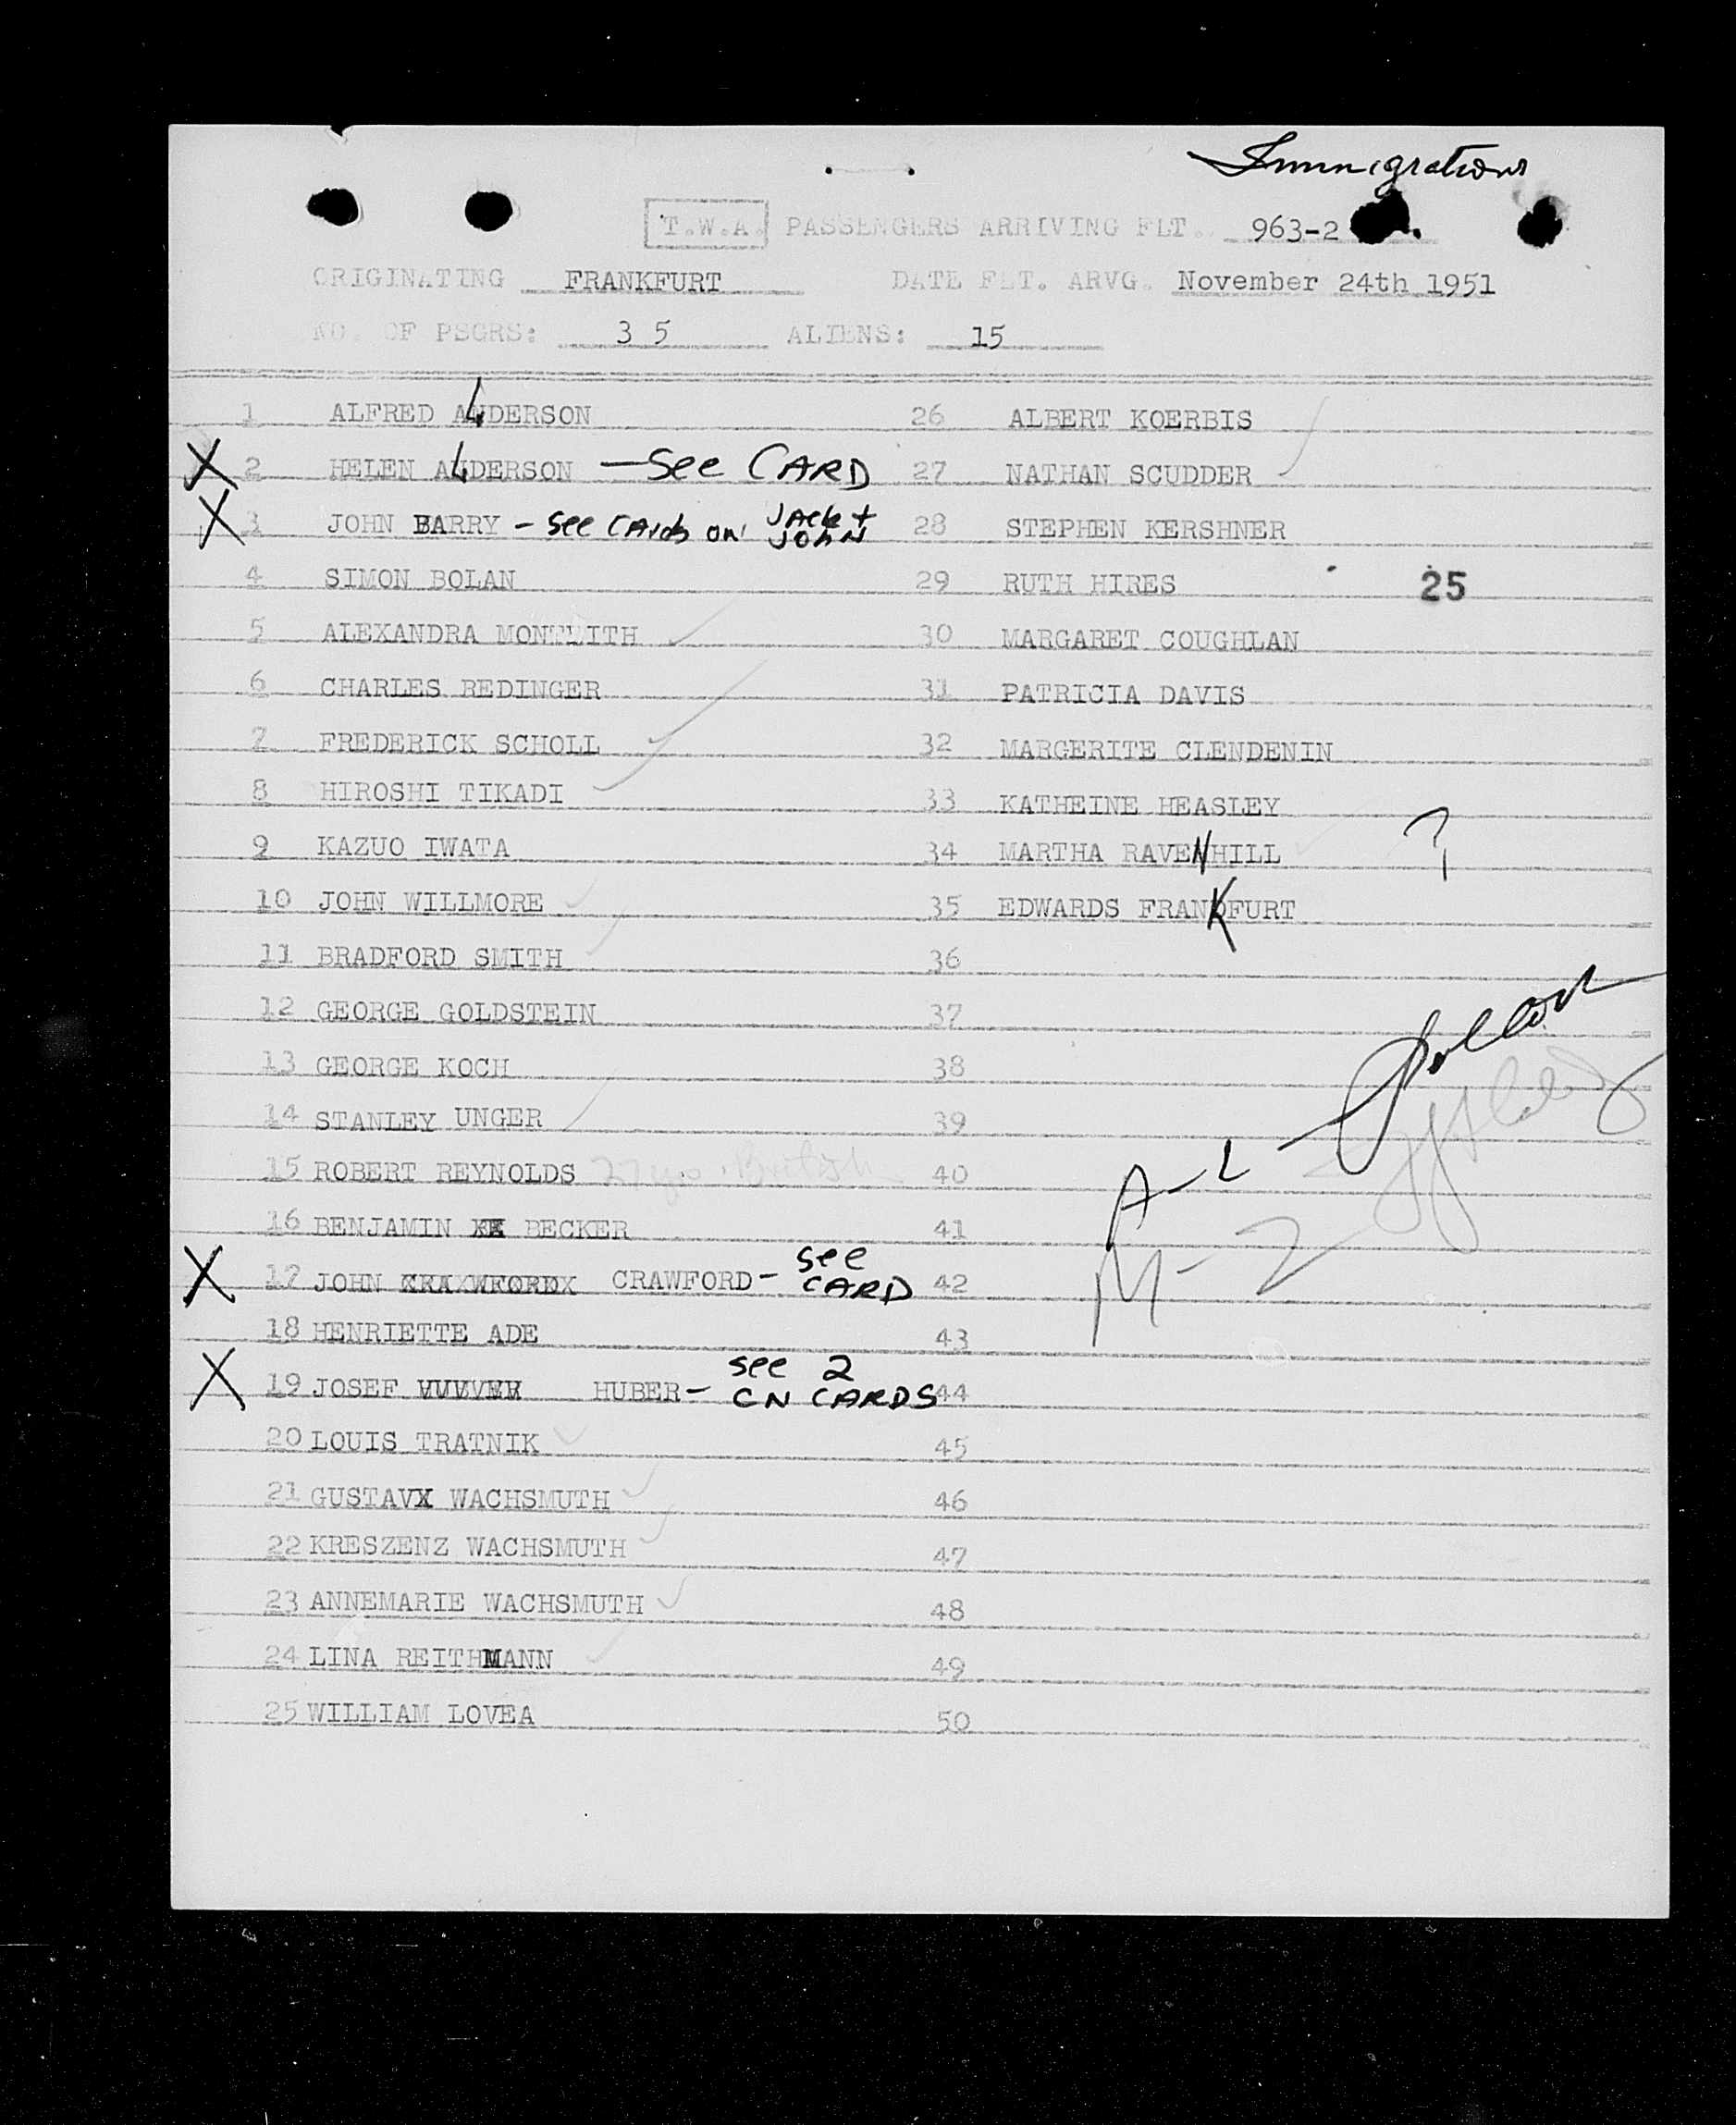 Immigration
T.W.A. PASSENGERS ARRIVING FLT. 963-2
ORIGINATING FRANKFURT DATE FLT. ARVG. November 24th 1951
NO. OF PSGRS: 3 5 ALIENS: 15
1 ALFRED ANDERSON
X 2 HELEN ANDERSON — See CARD
X 3 JOHN BARRY - see CARds on JAck + JOhN
4 SIMON BOLAN
5 ALEXANDRA MONTEITH
6 CHARLES REDINGER
7 FREDERICK SCHOLL
8 HIROSHI TIKADI
9 KAZUO IWATA
10 JOHN WILLMORE
11 BRADFORD SMITH
12 GEORGE GOLDSTEIN
13 GEORGE KOCH
14 STANLEY UNGER
15 ROBERT REYNOLDS British
16 BENJAMIN BECKER
X 17 JOHN CRAWFORD - see CARD
18 HENRIETTE ADE
X 19 JOSEF HUBER - see 2 CN CARDS
20 LOUIS TRATNIK
21 GUSTAVX WACHSMUTH
22 KRESZENZ WACHSMUTH
23 ANNEMARIE WACHSMUTH
24 LINA REITHMANN
25 WILLIAM LOVEA
26 ALBERT KOERBIS
27 NATHAN SCUDDER
28 STEPHEN KERSHNER
29 RUTH HIRES 25
30 MARGARET COUGHLAN
31 PATRICIA DAVIS
32 MARGERITE CLENDENIN
33 KATHEINE HEASLEY
34 MARTHA RAVENHILL ?
35 EDWARDS FRANKFURT
36
37
38
39
40
41
42
43
44
45
46
47
48
49
50
A-L
M-Z